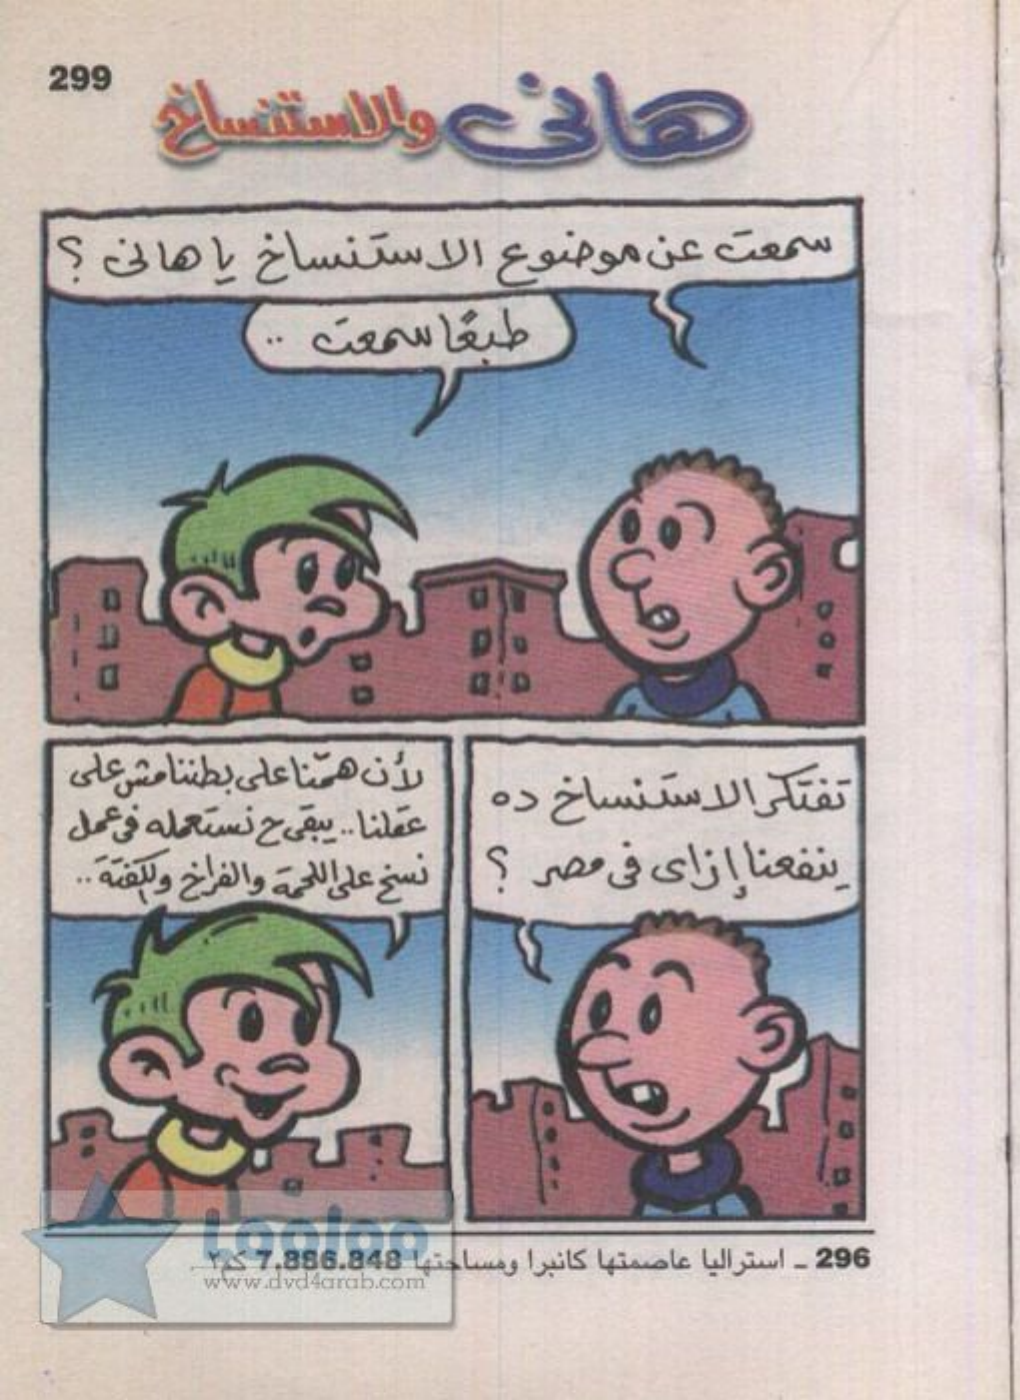 299
هانى والاستنساخ
سمعت عن موضوع الاستنساخ يا هانى ؟
طبعًا سمعت ..
تفتكر الاستنساخ ده
ينفعنا إزاى فى مصر ؟
لأن همّنا على بطننا مش على
عقلنا .. يبقى ح نستعمله فى عمل
نسخ على اللحمة والفراخ والكفتة ..
296 ــ استراليا عاصمتها كانبرا ومساحتها 7.886.848 كم٢ .
Looloo
www.dvd4arab.com